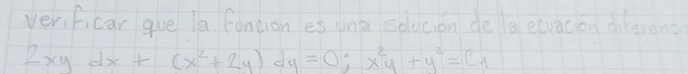 verificar que la función es una solución de la ecuación diferenc
2xy dx + (x² + 2y) dy = 0; x²y + y² = C₁